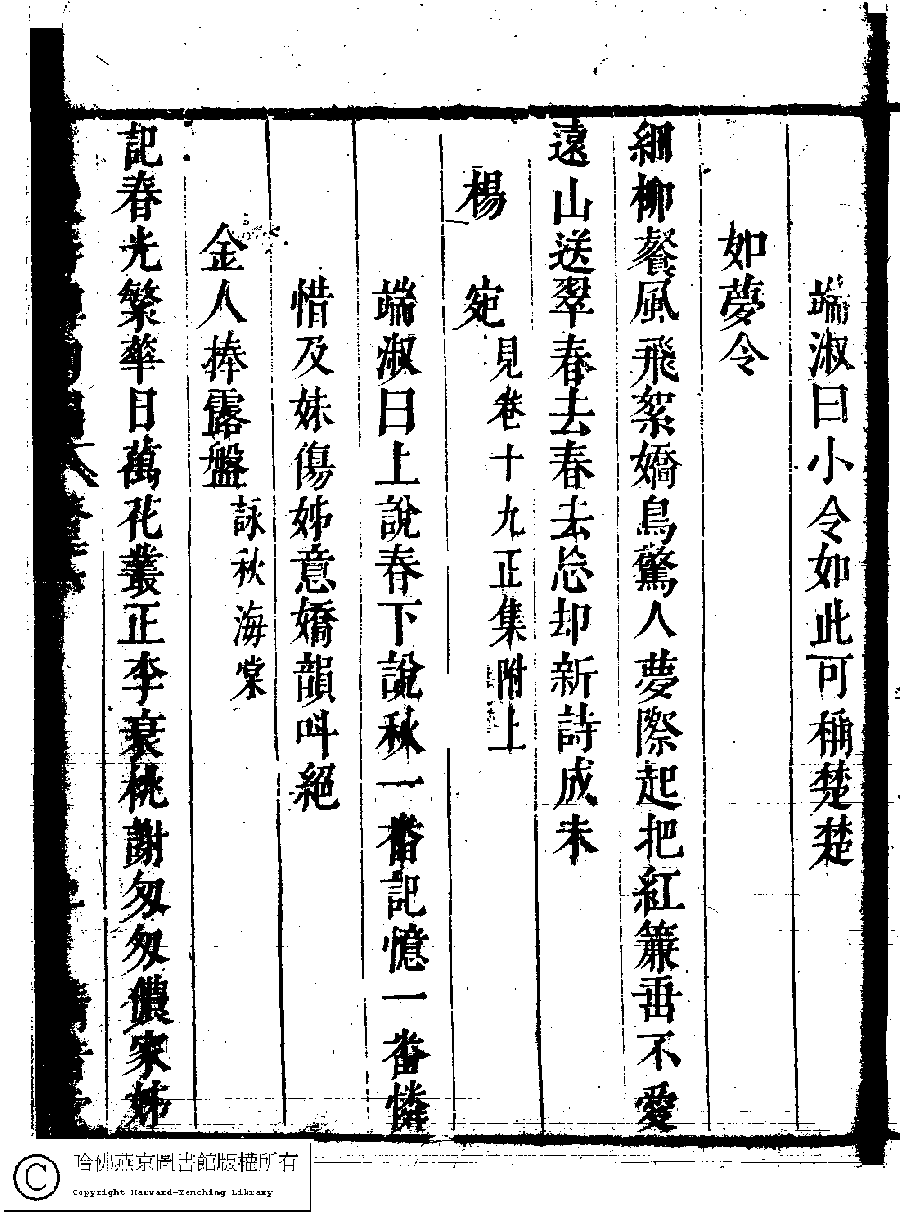 端淑曰小令如此可稱楚楚
如夢令
細柳餐風飛絮嬌鳥驚人夢際起把紅簾垂不愛
遠山送翠春去春去忘却新詩成未
楊 宛 見卷十九正集附上
端淑曰上說春下說秋一番記憶一番憐
惜及妹傷姊意嬌韻呌絕
金人捧露盤 詠秋海棠
記春光繁華日萬花叢正李衰桃謝匆匆儂家姊
哈佛燕京圖書館版權所有
Copyright Harvard-Yenching Library